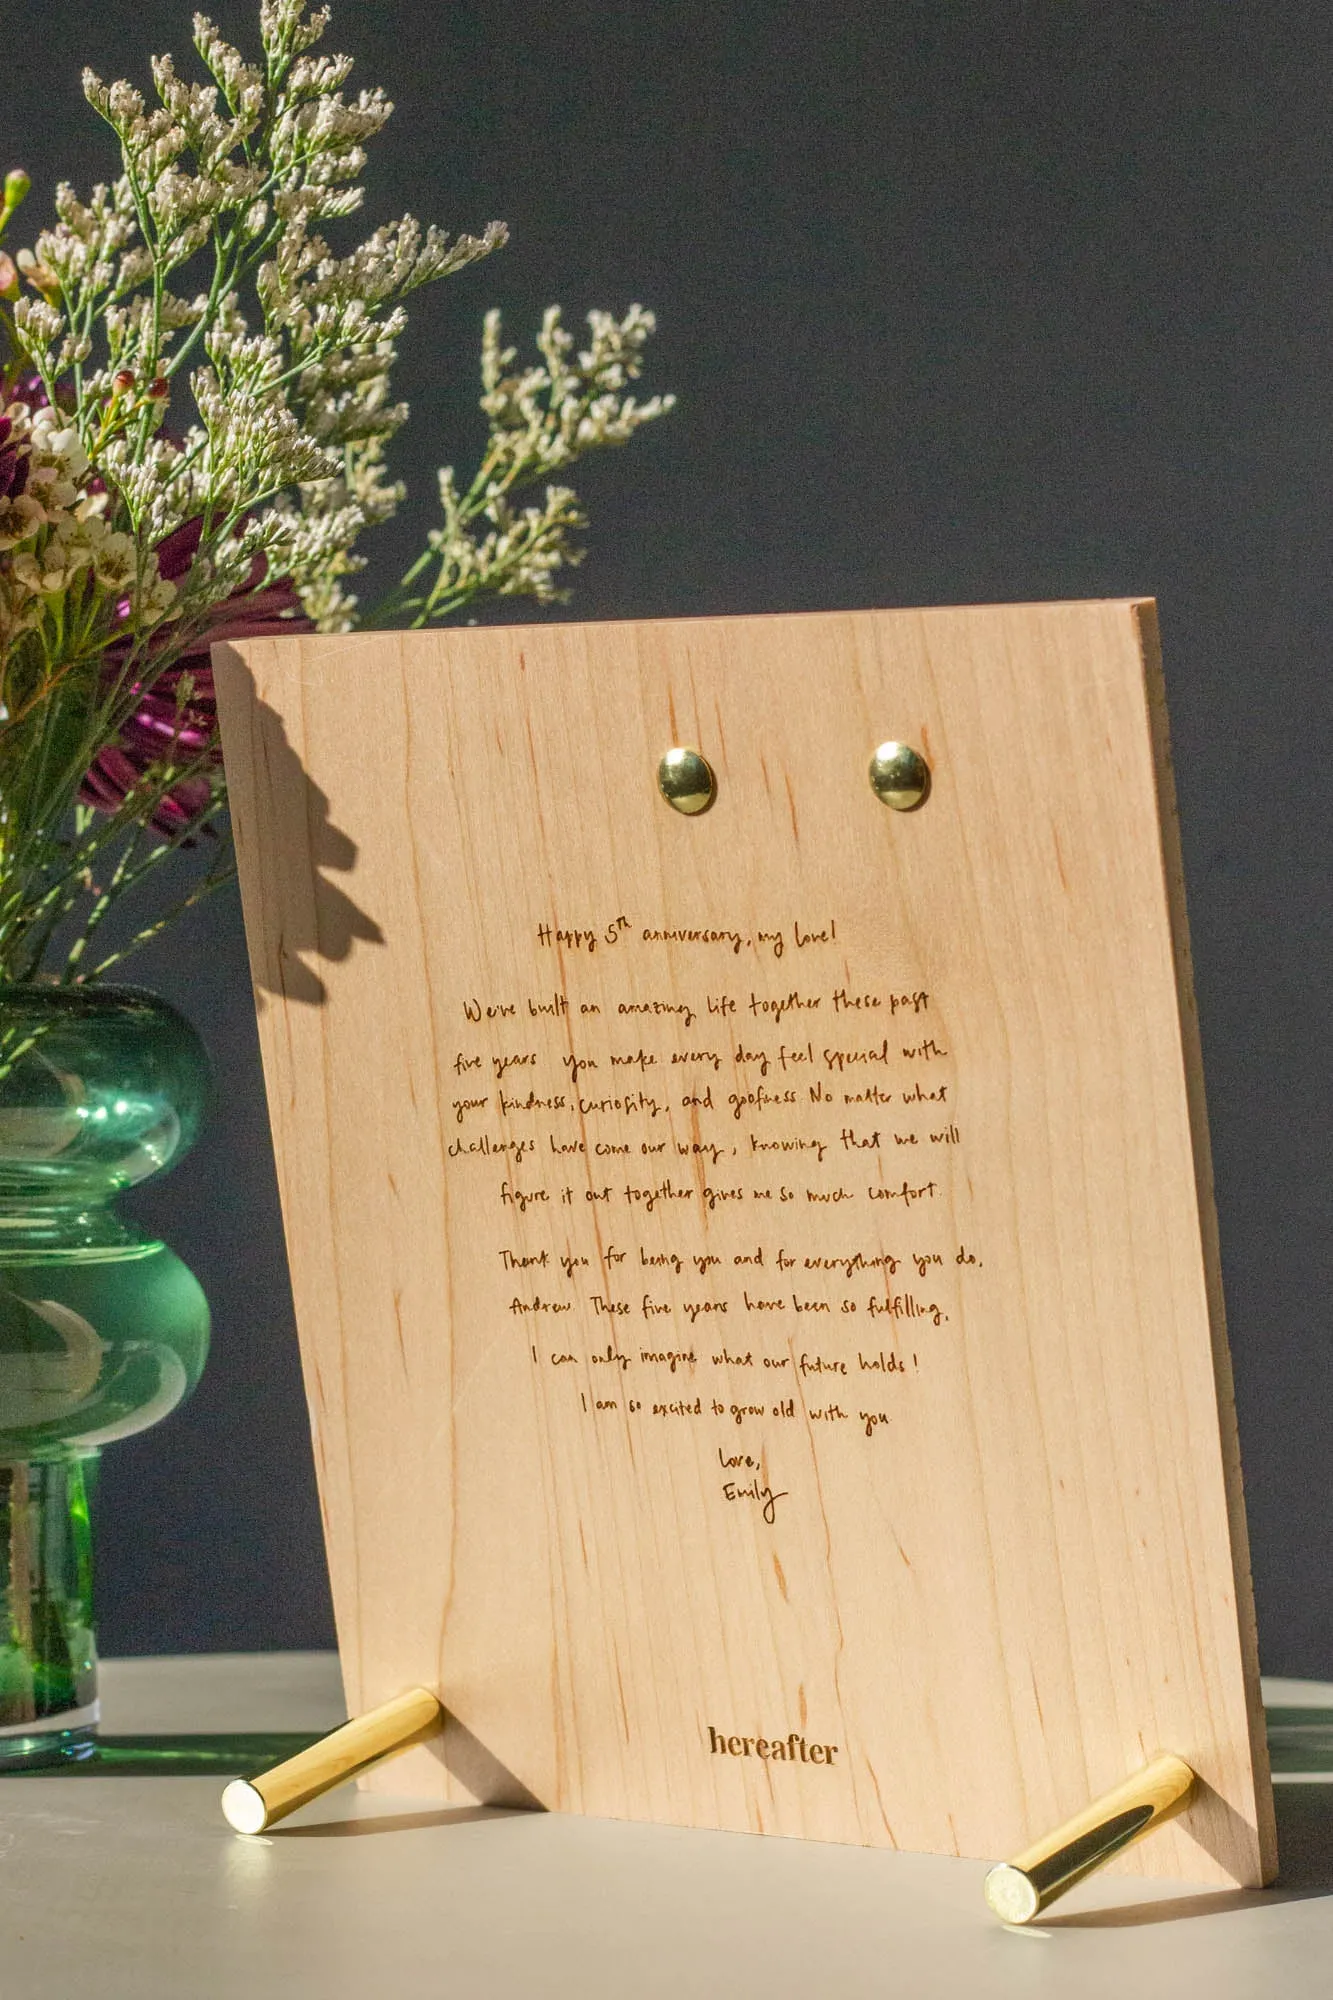 Happy 5th anniversary, my love!
We've built an amazing life together these past
five years you make every day feel special with
your kindness, curiosity, and goofiness. No matter what
challenges have come our way, knowing that we will
figure it out together gives me so much comfort.
Thank you for being you and for everything you do,
Andrew. These five years have been so fulfilling,
I can only imagine what our future holds!
I am so excited to grow old with you
Love,
Emily
hereafter